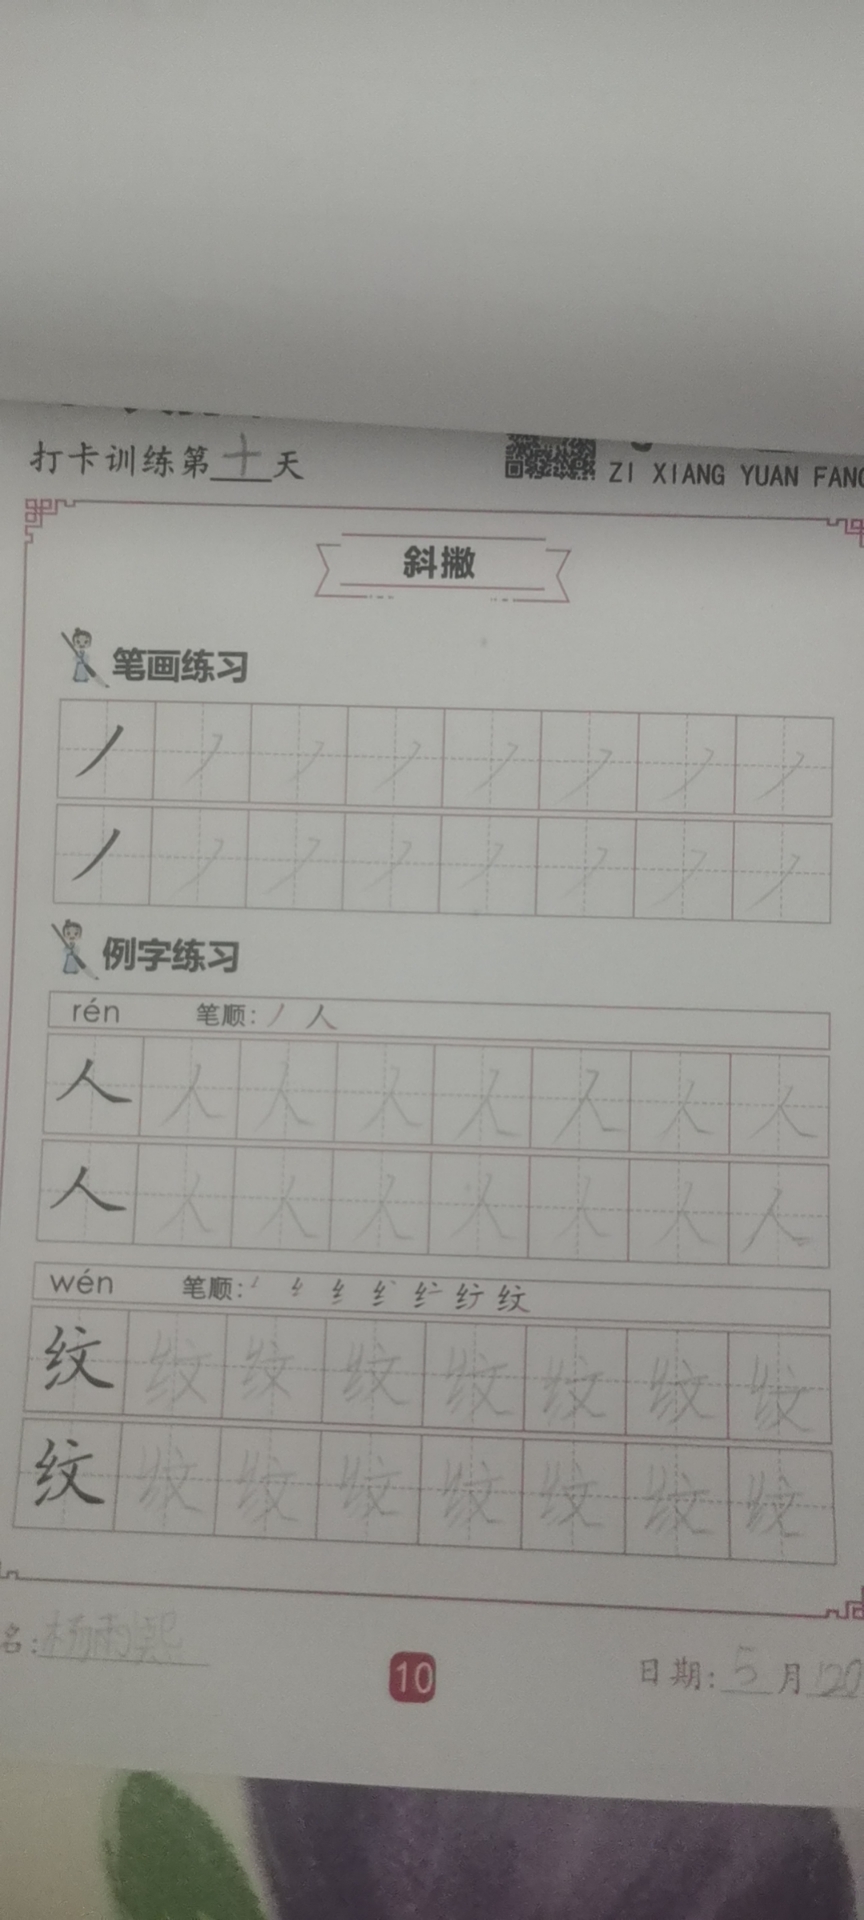 打卡训练第十天
ZI XIANG YUAN FANG
斜撇
笔画练习
丿丿丿丿丿丿丿丿
丿丿丿丿丿丿丿丿
例字练习
rén 笔顺：丿 人
人人人人人人人人
人人人人人人人人
wén 笔顺： 纹
纹纹纹纹纹纹纹纹
纹纹纹纹纹纹纹纹
名：杨雨熙
10
日期：5月20